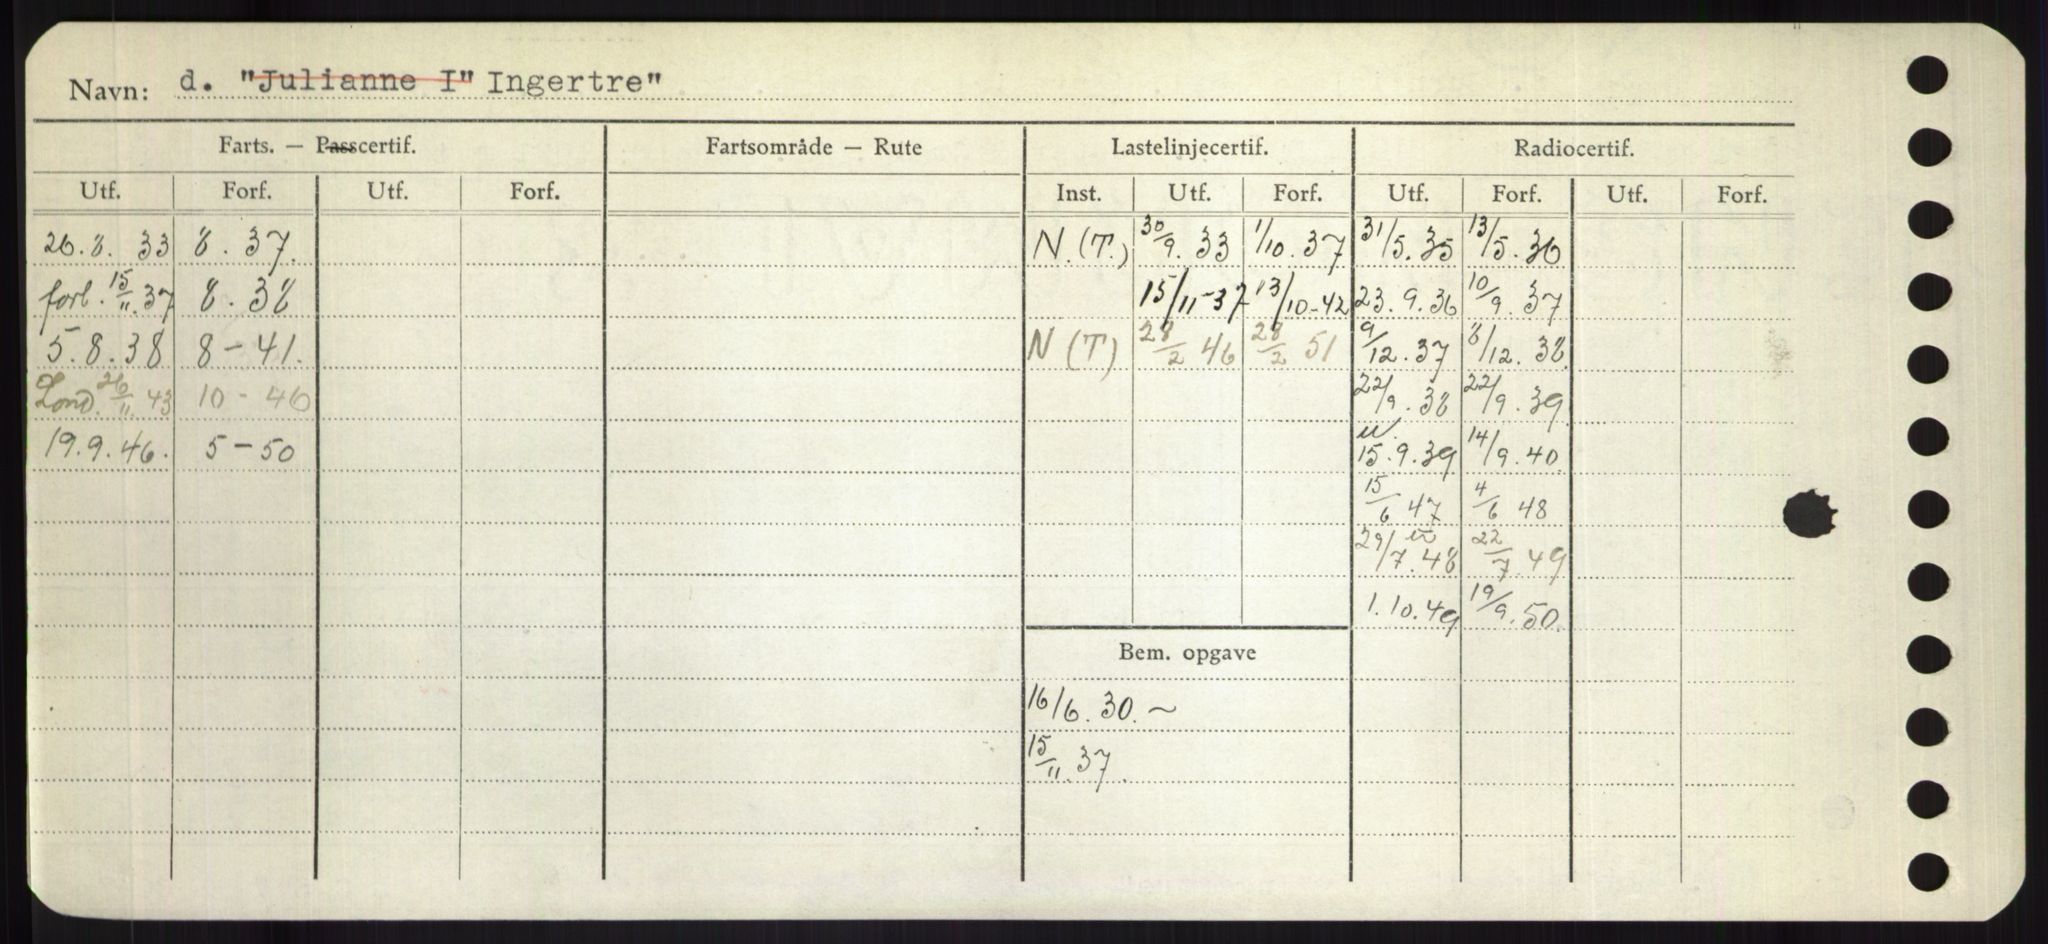 Navn: d. "Julianne I" Ingertre"
Farts. — Passcertif. Fartsområde — Rute Lastelinjecertif. Radiocertif.
Utf. Forf. Utf. Forf. Inst. Utf. Forf. Utf. Forf. Utf. Forf.
26.8. 33 8. 37. N. (T.) 30/9. 33 1/10. 37 31/5. 35 13/5. 36
forl. 15/11. 37 8. 38 15/11-37 13/10-42 23. 9. 36 10/9. 37
5. 8. 38 8-41. N (T) 28/2 46 28/2 51 9/12. 37 8/12. 38
Lond. 26/11. 43 10-46 22/9. 38 22/9. 39
19.9.46. 5-50 15.9.39 14/9.40
15/6 47 4/6 48
29/7.48 22/7.49
1.10.49 19/9.50
Bem. opgave
16/6. 30. ~
15/11. 37.